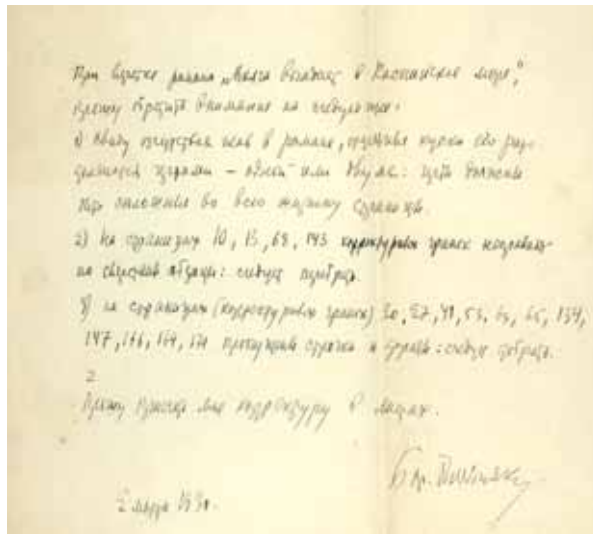 При верстке романа „Волга впадает в Каспийское море“,
прошу обратить внимание на следующее:
1) Ввиду отсутствия глав в романе, отдельные куски его раз-
деляются чертами – одной или двумя: черты должны
быть во всю ширину страницы.
2) На страницах 10, 15, 68, 143 корректурных гранок неправиль-
но сверстаны абзацы: следует перебрать.
3) на страницах (корректурных гранок) 20, 27, 49, 53, 63, 65, 134,
147, 166, 164, пропущены строчки и фразы: следует добрать.
2
Прошу прислать мне корректуру в листах.
Бор. Пильняк
2 марта 1930.